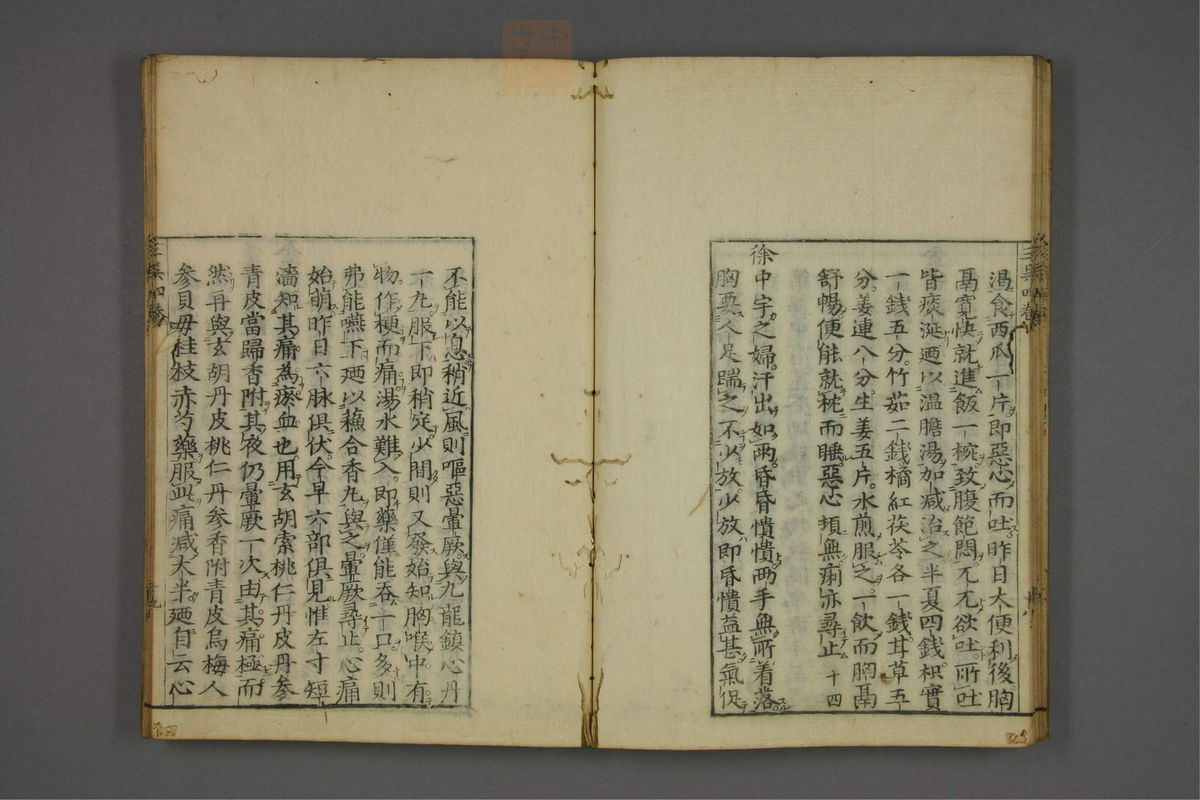 渴食西瓜一片即惡心而吐昨日大便利後胸
鬲寬快就進飯一椀致腹飽悶兀兀欲吐所吐
皆痰涎廼以温膽湯加减治之半夏四錢枳實
一錢五分竹茹二錢橘紅茯苓各一錢甘草五
分姜連八分生姜五片水煎服之一飲而胸鬲
舒暢便能就枕而睡惡心頓無痢亦尋止 十四
徐中宇之婦汗出如雨昏昏憒憒兩手無所着落
胸要人足踹之不少放少放即昏憒益甚氣促
不能以息稍近風則嘔惡暈厥與九龍鎮心丹
一丸服下即稍定少間則又發始知胸喉中有
物作梗而痛湯水難入即藥僅能吞一口多則
弗能嚥下廼以蘓合香丸與之暈厥尋止心痛
始萌昨日六脉俱伏今早六部俱見惟左寸短
濇知其痛為瘀血也用玄胡索桃仁丹皮丹参
青皮當歸香附其夜仍暈厥一次由其痛極而
然再與玄胡丹皮桃仁丹参香附青皮烏梅人
参貝母桂枝赤芍藥服此痛减大半廼自云心